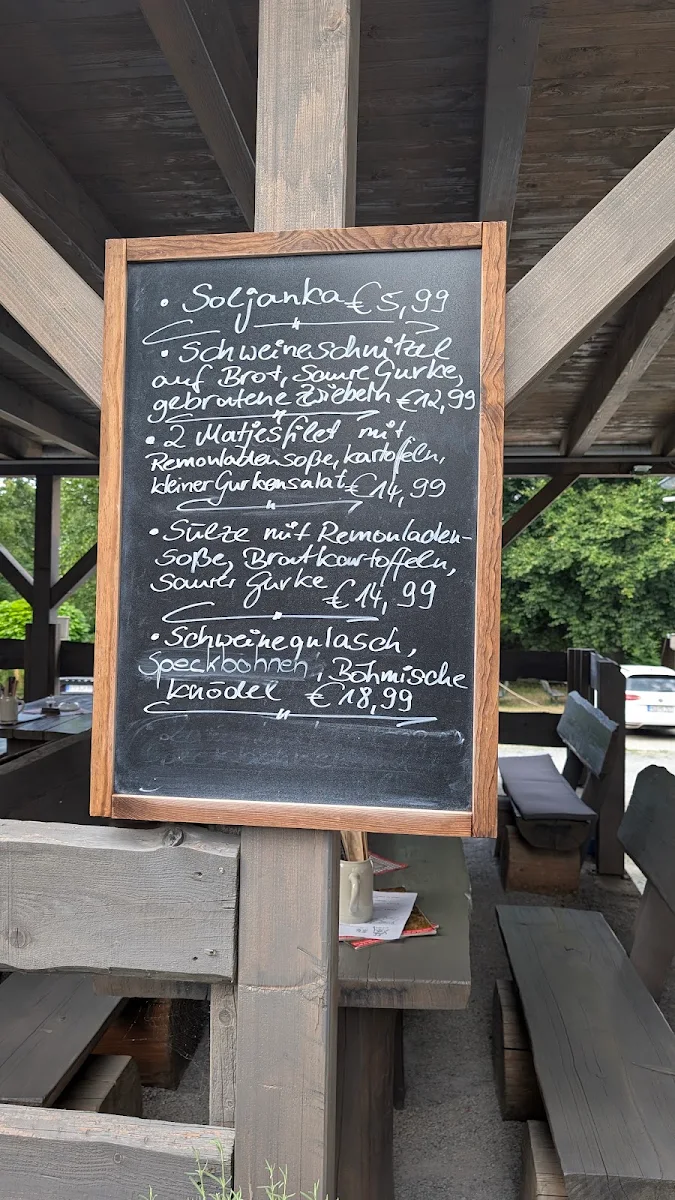 • Soljanka €5,99
• Schweineschnitzel
auf Brot, Saure Gurke,
gebratene Zwiebeln €12,99
• 2 Matjesfilet mit
Remouladensoße, Kartoffeln,
kleiner Gurkensalat €14,99
• Sülze mit Remouladen-
soße, Bratkartoffeln,
Saure Gurke €14,99
• Schweinegulasch,
Speckbohnen, Böhmische
Knödel €18,99